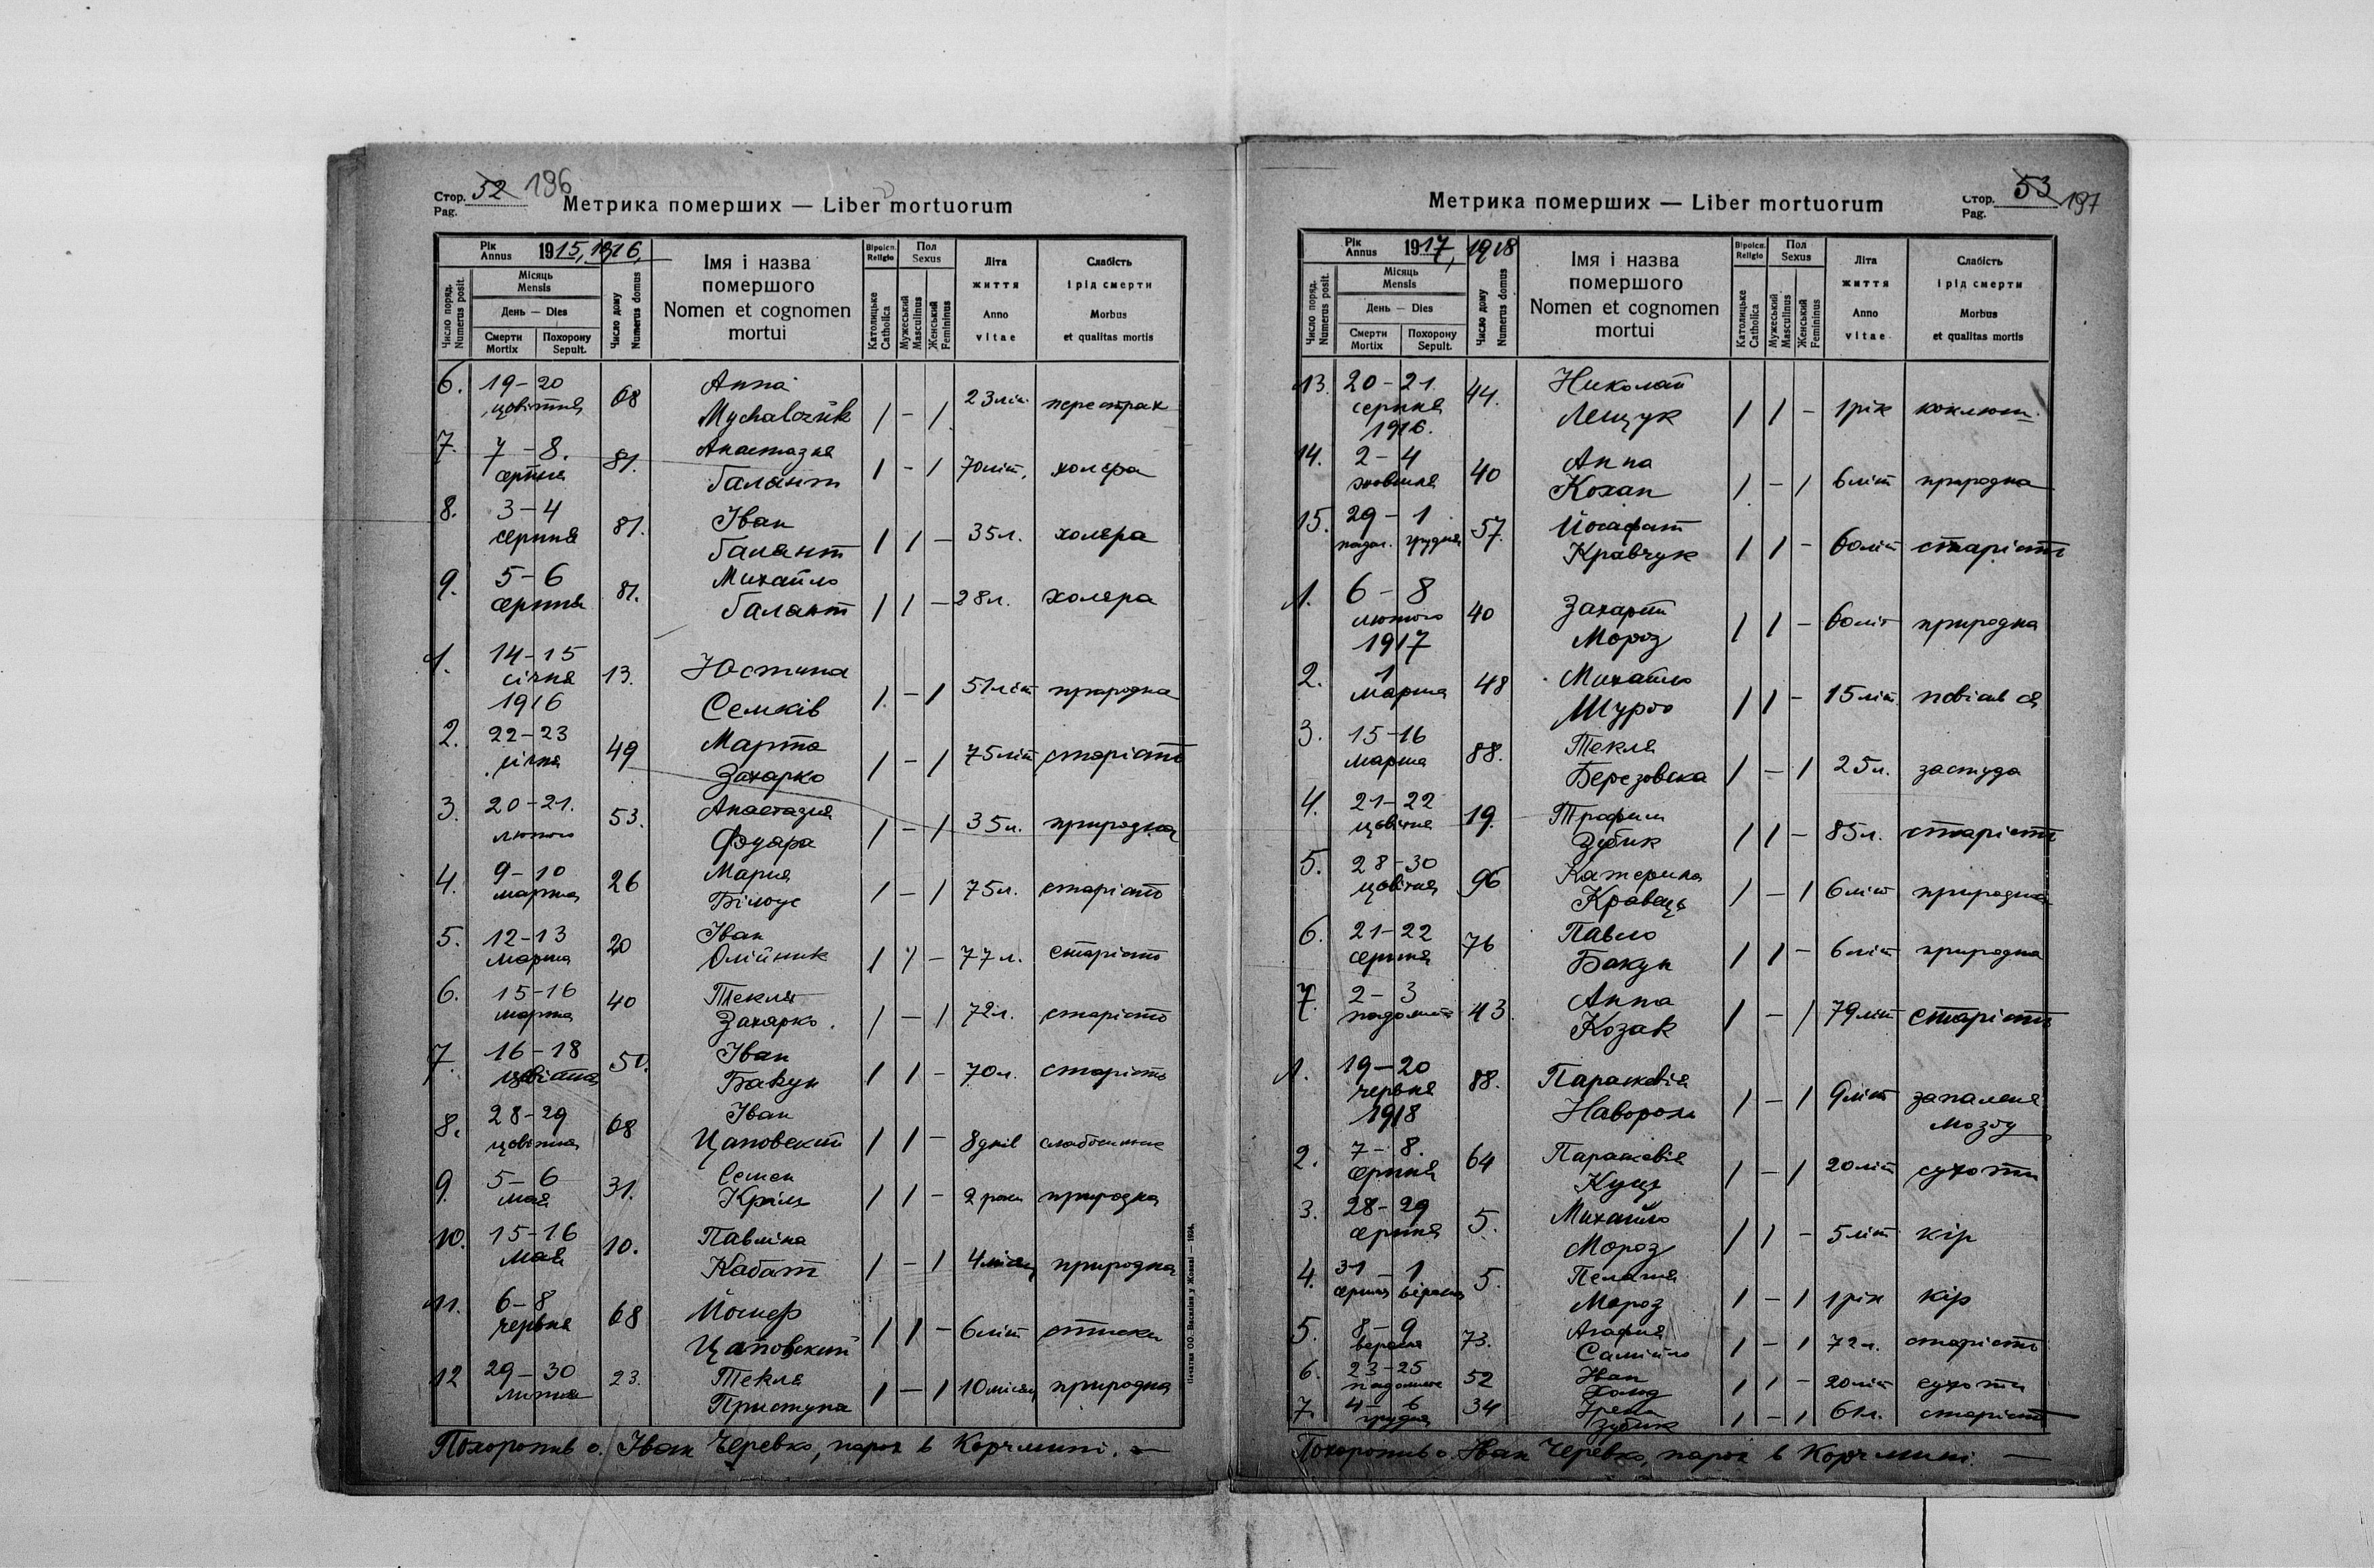 Стор. 52 196
Pag.
Метрика померших — Liber mortuorum
Рік
Annus
1915, 1916,
Місяць
Mensis
День — Dies
Смерти
Mortix
Похорону
Sepult.
Число поряд.
Numerus posit.
Число дому
Numerus domus
Імя і назва
помершого
Nomen et cognomen
mortui
Віроісп.
Religio
Католицьке
Catholica
Пол
Sexus
Мужеський
Masculinus
Женський
Femininus
Літа
життя
Anno
vitae
Слабість
і рід смерти
Morbus
et qualitas mortis
6. 19-20 цвітня 68 Анна Mychalczuk 1 - 1 23 літ. перестрах
7. 7-8. серпня 81. Анастазия Галант 1 - 1 70 літ. холера
8. 3-4 серпня 81. Іван Галант 1 1 - 35 л. холера
9. 5-6 серпня 81. Михайло Галант 1 1 - 28 л. холера
1. 14-15 січня 1916 13. Юстина Семків 1 - 1 51 літ природна
2. 22-23 січня 49 Марта Захарко 1 - 1 75 літ старість
3. 20-21. лютого 53. Анастазия 1 - 1 35 л. природна
4. 9-10 марта 26 Мария Білоус 1 - 1 75 л. старість
5. 12-13 марта 20 Іван Олійник 1 1 - 77 л. старість
6. 15-16 марта 40 Текля Захарко. 1 - 1 72 л. старість
7. 16-18 цвітня 50. Іван Бакун 1 1 - 70 л. старість
8. 28-29 цвітня 68 Іван Цаповский 1 1 - 8 днів
9. 5-6 мая 31. Семен Кріль 1 1 - 2 роки природна
10. 15-16 мая 10. Павліна Кабат 1 - 1 4 місяц природна
11. 6-8 червня 68 Йосиф Цаповский 1 1 - 6 літ
12 29-30 липня 23. Текля Приступа 1 - 1 10 місяц природна
Похоронив о. Іван Черевко, парох в Корчмині. —
Печатня ОО. Василіян у Жовкві — 1934.
Метрика померших — Liber mortuorum
Стор. 53 197
Pag.
Рік
Annus
1917, 1918
Місяць
Mensis
День — Dies
Смерти
Mortix
Похорону
Sepult.
Число поряд.
Numerus posit.
Число дому
Numerus domus
Імя і назва
помершого
Nomen et cognomen
mortui
Віроісп.
Religio
Католицьке
Catholica
Пол
Sexus
Мужеський
Masculinus
Женський
Femininus
Літа
життя
Anno
vitae
Слабість
і рід смерти
Morbus
et qualitas mortis
13. 20-21. серпня 1916. 44. Николай Лещук 1 1 - 1 рік коклюш
14. 2-4 жовтня 40 Анна Кохан 1 - 1 6 літ природна
15. 29-1 падол. грудня 57. Йосафат Кравчук 1 1 - 60 літ старість
1. 6-8 лютого 1917 40 Захарий Мороз 1 1 - 60 літ природна
2. 1 марта 48 Михайло Шурго 1 1 - 15 літ повісив ся
3. 15-16 марта 88. Текля Березовска 1 - 1 25 л. застуда
4. 21-22 цвітня 19. Трофим Зубик 1 1 - 85 л. старість
5. 28-30 цвітня 96 Катерина Кравець 1 - 1 6 літ природна
6. 21-22 серпня 76 Павло Бакун 1 1 - 6 літ природна
7. 2-3 падолиста 43 Анна Козак 1 - 1 79 літ старість
1. 19-20 червня 1918 88. Параскевія 1 - 1 9 літ запаленя мозгу
2. 7-8. серпня 64 Параскевія Куць 1 - 1 20 літ сухоти
3. 28-29 серпня 5. Михайло Мороз 1 1 - 5 літ кір
4. 31-1 серпня вересня 5. Пелагия Мороз 1 - 1 1 рік кір
5. 8-9 вересня 73. Агафия Самійло 1 - 1 72 л. старість
6. 23-25 падолиста 52 Іван 1 1 - 20 літ сухоти
7. 4-6 грудня 34 Ірена Зубик 1 - 1 61 л. старість
Похоронив о. Іван Черевко, парох в Корчмині. —